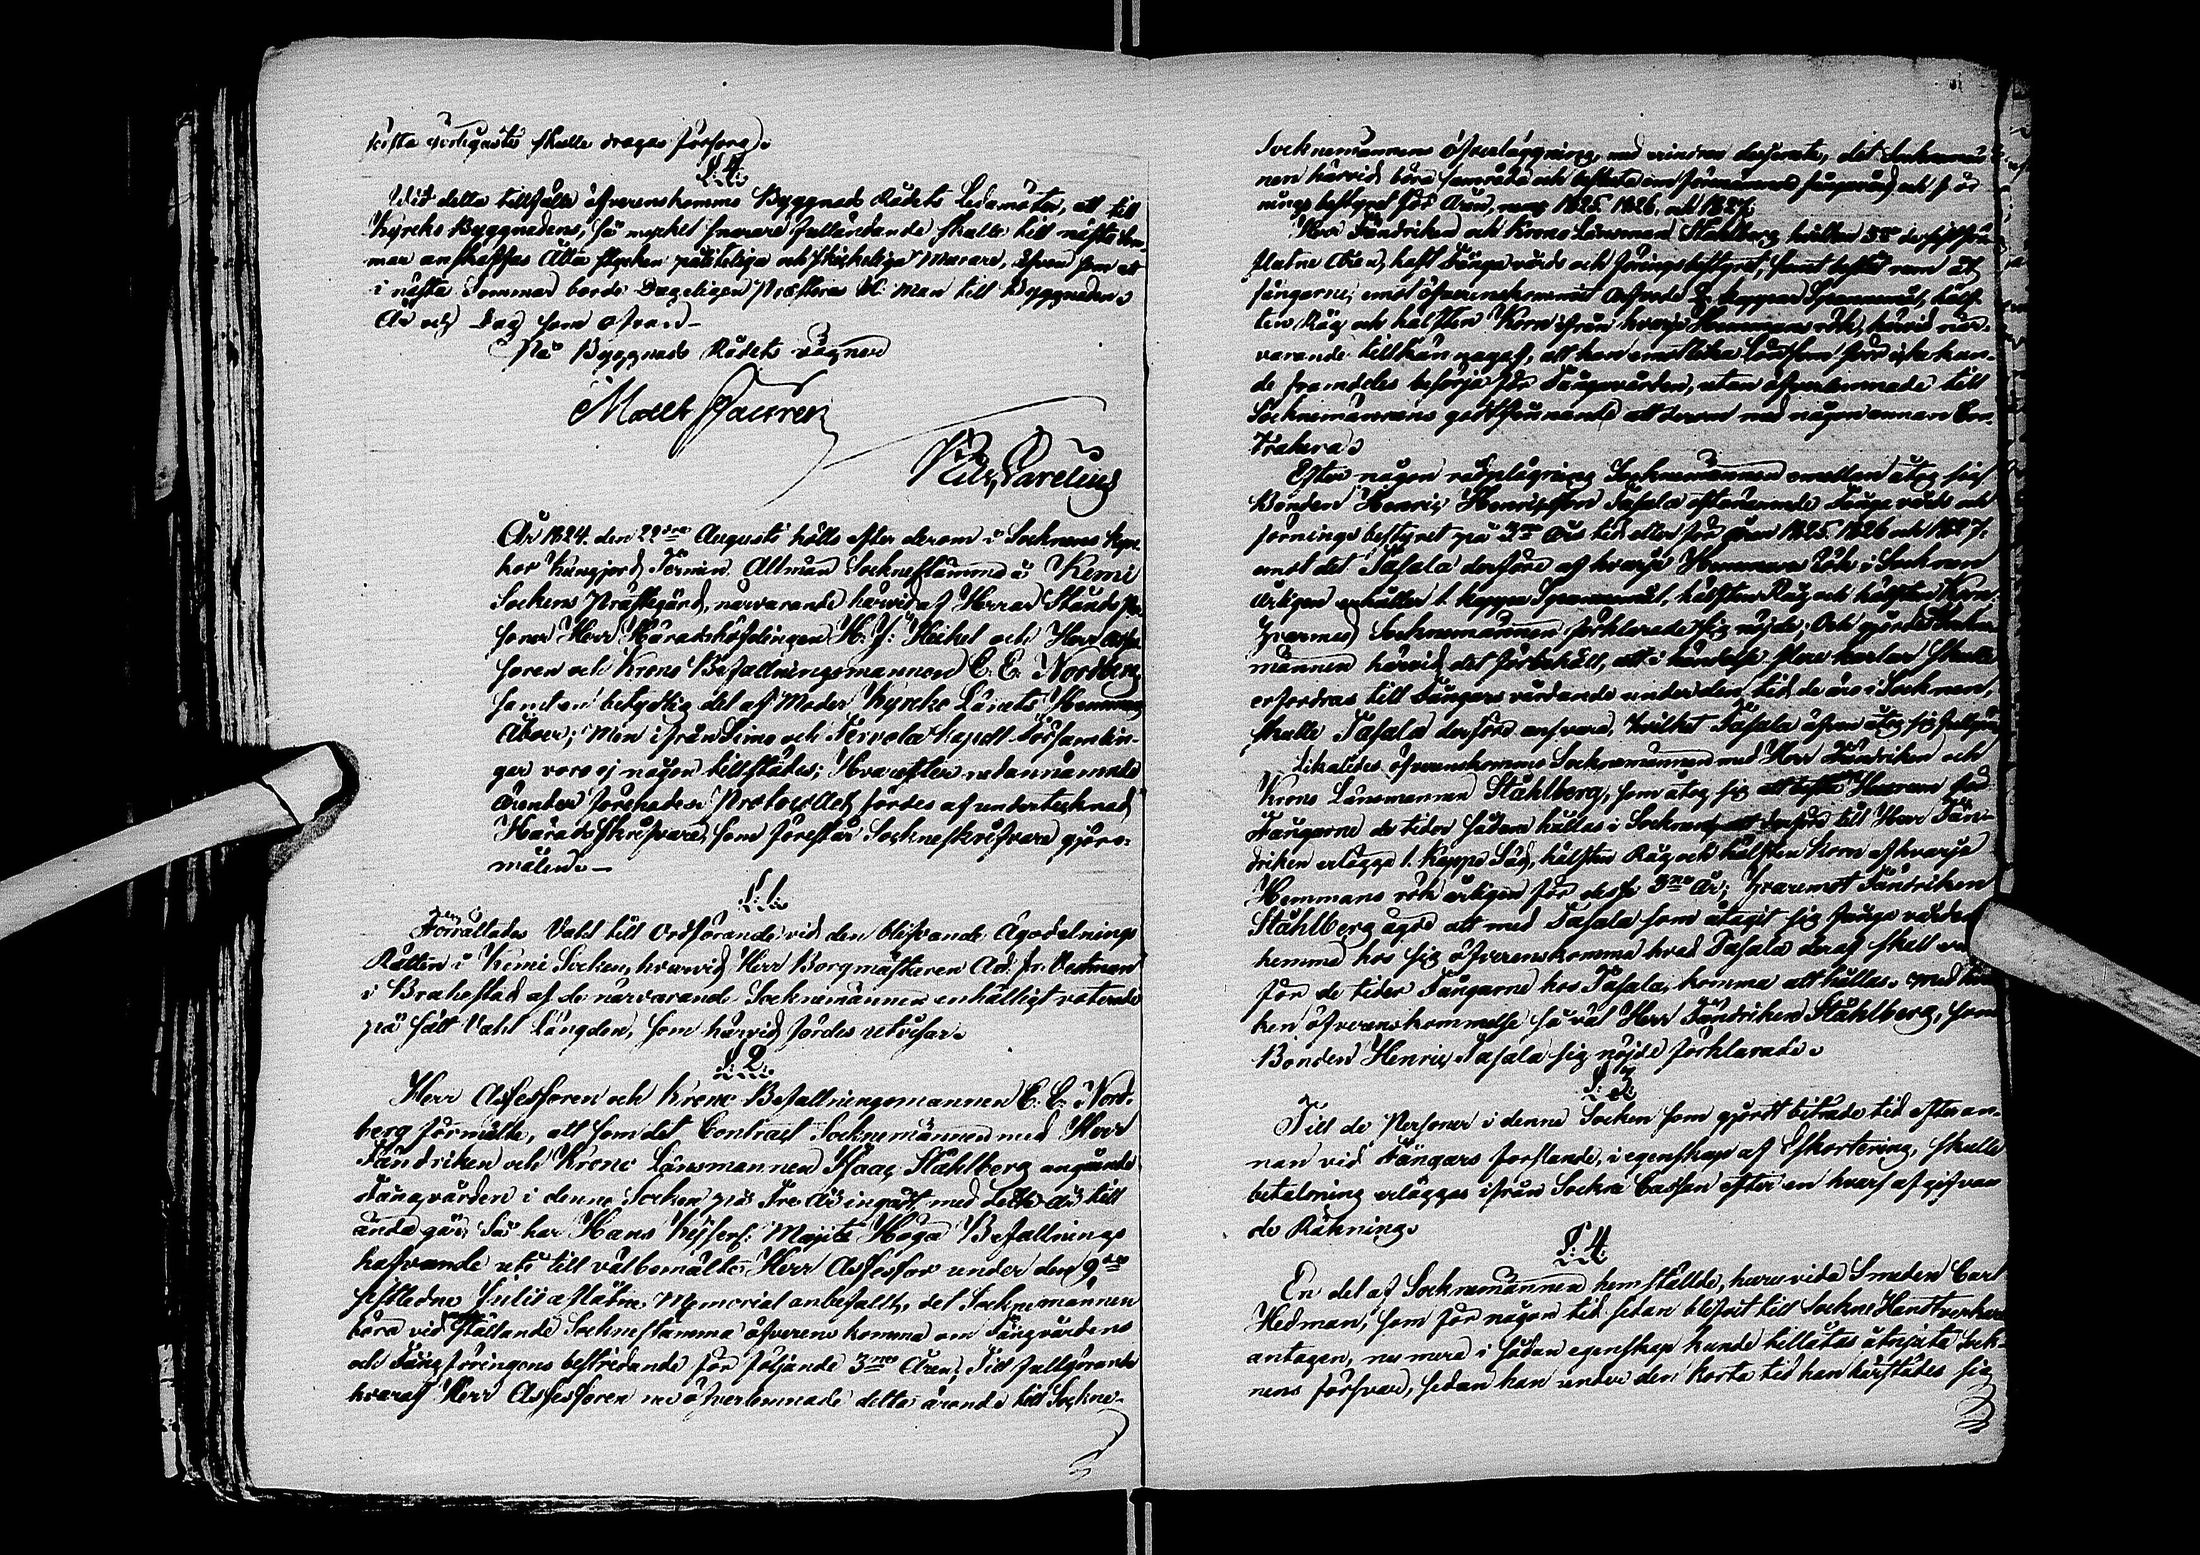 sista skulle dragas försorg.
§: 4.
Vid detta tillfälle öfverenskommo Byggnads Rådets Ledamöter, att till
Kyrcko Byggnadens, så mycket snarare fulländande skulle till nästa Som-
mar anskaffas Åtta stycken pålitelige och skickelige Murare, äfven som at
i nästa Sommar borde Dageligen man till Byggnaden.
År och Dag som ofvan.
På Byggnads Rådets vägnar
Matts
År 1824. den 22dra Augusti hölls efter derom i Socknens Kyr-
kor kungjord Termin Allmän Socknestämma å Kemi
Sockens Prästegård, närvarande härvid af Herrar Stånds Per-
soner Herr Häradshöfdingen H. J: Heikel och Herr Asses-
soren och Krono Befallningsmannen E. E. Nordberg
samt en betydlig del af Moder Kyrcko Länets Hemmans
Åboer; Men ifrån Simo och Tervola Kapell Församlin-
gar voro ej någon tillstädes; Hvarefter nedannämnde
ärender förehades. Protocollet fördes af undertecknad
Häradsskrifvare, som förestår Sockneskrifvare gjöro-
målen.
§: 1.
Förrättades Vahl till Ordförande vid den blifvande Ägodelnings
Rätten i Kemi Socken, hvarvid Herr Borgmästaren Ad. Fr. Vestman
i Brahestad af de närvarande Socknemännen enhälligt voterade
på sätt Vahl Längden, som härvid fördes utvisar.
§: 2.
Herr Assessoren och Krono Befallningsmannen E. E. Nord-
berg förmälte, att som det Contract Socknemännen med Herr
Fändriken och Krono Länsmannen Isaac Ståhlberg angående
Fångvården i denne Socken på Tre År ingått, med detta År till
ända går, Så har Hans Kejserl: Majts Höga Befallnings
hafvande uti till välbemälte Herr Assessor under den 9de
sistledne Julii aflåtne Memorial anbefallt, det Socknemännen
böra vid ställande Socknestämma öfverens komma om Fångvårdens
och Fångföringens bestridande för följande 3ne Åren; Till fullgörande
hvaraf Herr Assessoren nu öfverlemnade detta ärende till Sockne-
Socknemännens öfverläggning, med erindran derjemte, det Socknemän-
nen härvid böra samråda och besluta om förenämnde fångvård och för
nings bestyret för Åren, nemn. 1825. 1826. och 1827.
Herr Fändriken och Krono Länsman Ståhlberg hvilken de sistför-
flutne Åren, haft Fånge vårds och förings bestyret, samt bestått rum åt
fångarne, emot öfverenskommit kappar Spannemål, hälf-
ten Råg och hälften Korn ifrån hvarje Hemmans rök, härvid när-
varande tillkännagaf, att han emot lika Lön som förr icke kun-
de framdeles besörja för Fångvården, utan öfverlemnade till
Socknemännens godtfinnande att derom med någon annan Con-
trahera.
Efter någon rådplägning Socknemännen emellan åtog sig
Bonden Henric Henricsson Tafala oftenämnde Fånge vård och
förnings bestyret på 3ne Års tid eller för åren 1825. 1826 och 1827.
emot det Tafala derföre af hvarje Hemmans Rök i Socknen
årligen erhåller 1. kappe Spannemål, hälften Råg och hälften Korn,
Hvarmed Socknemännen förklarade sig nöjde, Och gjorde Sockne-
männen härvid det förbehåll, att i händelse flere karlar skulle
erfordras till Fångars vårdande under den tid de äro i Socknen,
skulle Tafala derföre ansvara, hvilket Tafala äfven åtog sig fullgöra
Likaledes öfverenskommo Socknemännen med Herr Fändriken och
Krono Länsmannen Ståhlberg, som åtog sig att bestå Husrum för
Fångarne de tider sådane hållas i Socknen, att derföre till Herr Fän-
driken erlägga 1. Kappe Säd, hälften Råg och hälften Korn af hvarje
Hemmans rök årligen för desse 3ne År; Hvaremot Fändriken
Ståhlberg ägde att med Tafala som åtagit sig fånge vården
hemma hos sig öfverenskomma hvad Tafala deraf skall
för de tider Fångarne hos Tafala, komma att hållas.
ken öfverenskommelse så väl Herr Fändriken Ståhlberg, som
Bonden Henric Tafala sig nöjde förklarade.
§: 3.
Till de Personer i denne Socken som gjort biträde tid efter an-
nan vid Fångars forslande, i egenskap af Eskortering, skulle
betalning erläggas ifrån Sockne Cassan efter en hvars afgifvan-
de Räkning.
§: 4.
En del af Socknemännen hemställde, huru vida Smeden Carl
Hedman, som för någon tid sedan blifvit till Sockne Handtverkare
antagen, nu mera i sådan egenskap kunde tillåtas åtnjuta Sock-
nens försvar, sedan han under den korta tid han härstädes sig